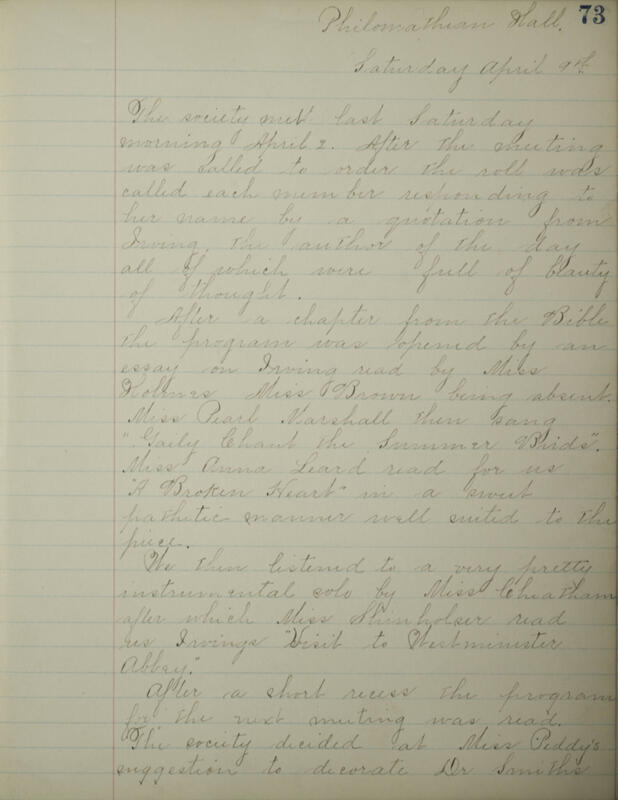 Philomathean Hall. 73
Saturday April 9th
The society met last Saturday
morning April 2. After the meeting
was called to order the roll was
called each member responding to
her name by a quotation from
Irving, the author of the day
all of which were full of beauty
of thought.
After a chapter from the Bible
the program was opened by an
essay on Irving read by Miss
Holmes Miss Brown being absent.
Miss Pearl Marshall then sang
"Gaily Chant the Summer Birds".
Miss Anna Leard read for us
"A Broken Heart" in a sweet
pathetic manner well suited to the
piece.
We then listened to a very pretty
instrumental solo by Miss Cheatham
after which Miss Shinholser read
us Irvings "Visit to Westminister
Abbey."
After a short recess the program
for the next meeting was read.
The society decided at Miss Peddy's
suggestion to decorate Dr Smith's